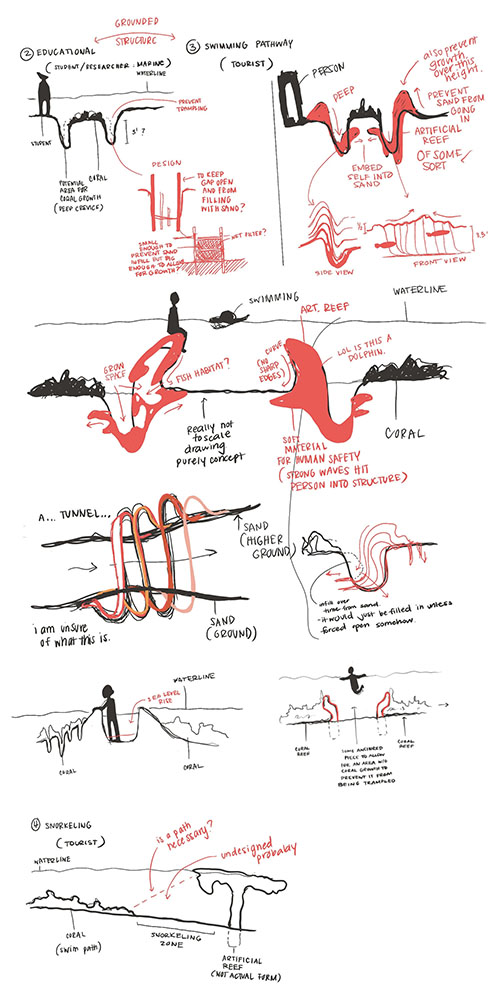 GROUNDED
STRUCTURE
② EDUCATIONAL
(STUDENT/RESEARCHER: MARINE)
WATERLINE
PREVENT
TRAMPLING
3' ?
STUDENT
CORAL
POTENTIAL
AREA FOR
CORAL GROWTH
(DEEP CREVICE)
DESIGN
TO KEEP
GAP OPEN
AND FROM
FILLING
WITH SAND?
SMALL
ENOUGH TO
PREVENT SAND
INFILL BUT BIG
ENOUGH TO ALLOW
FOR GROWTH?
NET FILTER?
③ SWIMMING PATHWAY
(TOURIST)
PERSON
DEEP
also prevent
growth
over this
height.
PREVENT
SAND FROM
GOING
IN
ARTIFICIAL
REEF
OF SOME
SORT
EMBED
SELF INTO
SAND
SIDE VIEW
FRONT VIEW
3.5'
SWIMMING
WATERLINE
ART. REEF
GROW
SPACE
FISH HABITAT?
CURVE
(NO
SHARP
EDGES)
LOL IS THIS A
DOLPHIN.
Really not
to scale
drawing
purely concept
CORAL
SOFT
MATERIAL
FOR HUMAN SAFETY
(STRONG WAVES HIT
PERSON INTO STRUCTURE)
A... TUNNEL...
SAND
(HIGHER
GROUND)
i am unsure
of what this is.
SAND
(GROUND)
infill over
time from sand.
- it would just be filled in unless
forced open somehow.
WATERLINE
SEA LEVEL
RISE
CORAL
CORAL
WATERLINE
CORAL
REEF
SOME ANCHORED
PIECE TO ALLOW
FOR AN AREA W/O
CORAL GROWTH TO
PREVENT IT FROM
BEING TRAMPLED
CORAL
REEF
④ SNORKELING
(TOURIST)
WATERLINE
is a path
necessary?
undesigned
probably
CORAL
(swim path)
SNORKELING
ZONE
ARTIFICIAL
REEF
(NOT ACTUAL FORM)